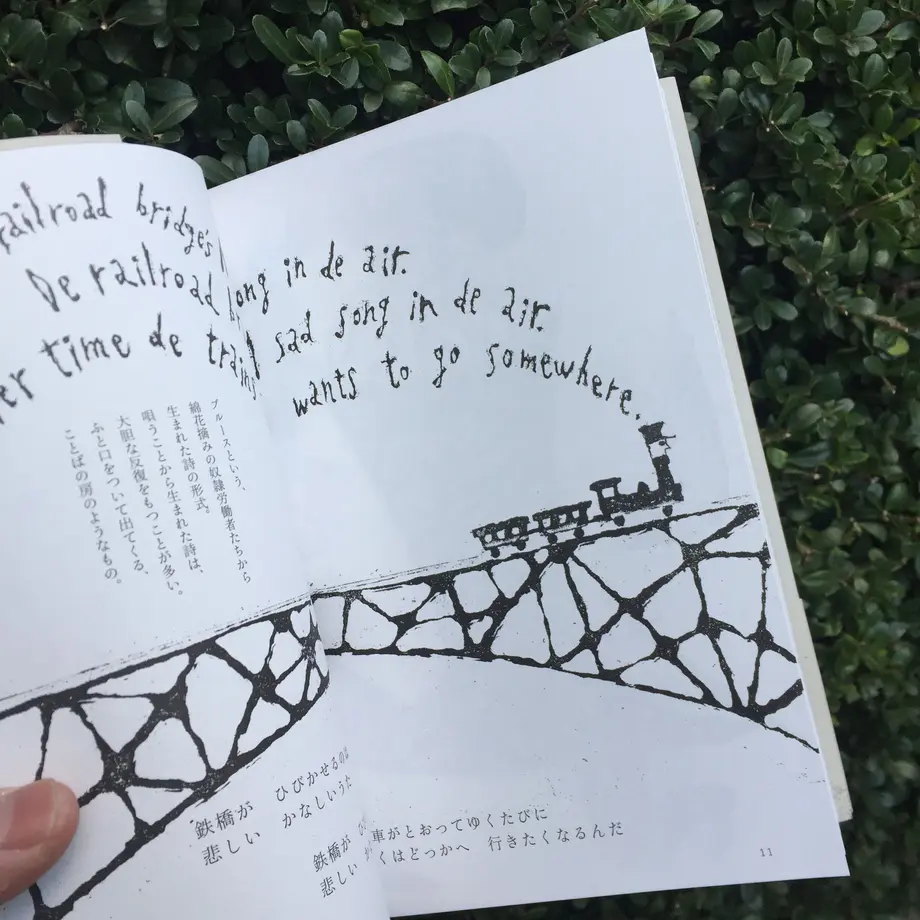 railroad bridge's
De railroad
er time de train
ong in de air.
sad song in de air.
wants to go somewhere.
ブルースという、
綿花摘みの奴隷労働者たちから
生まれた詩の形式。
唄うことから生まれた詩は、
大胆な反復をもつことが多い。
ふと口をついて出てくる、
ことばの房のようなもの。
鉄橋が ひびかせるの
悲しい かなしいうた
鉄橋が ひ
悲しい
車がとおってゆくたびに
くはどっかへ 行きたくなるんだ
11